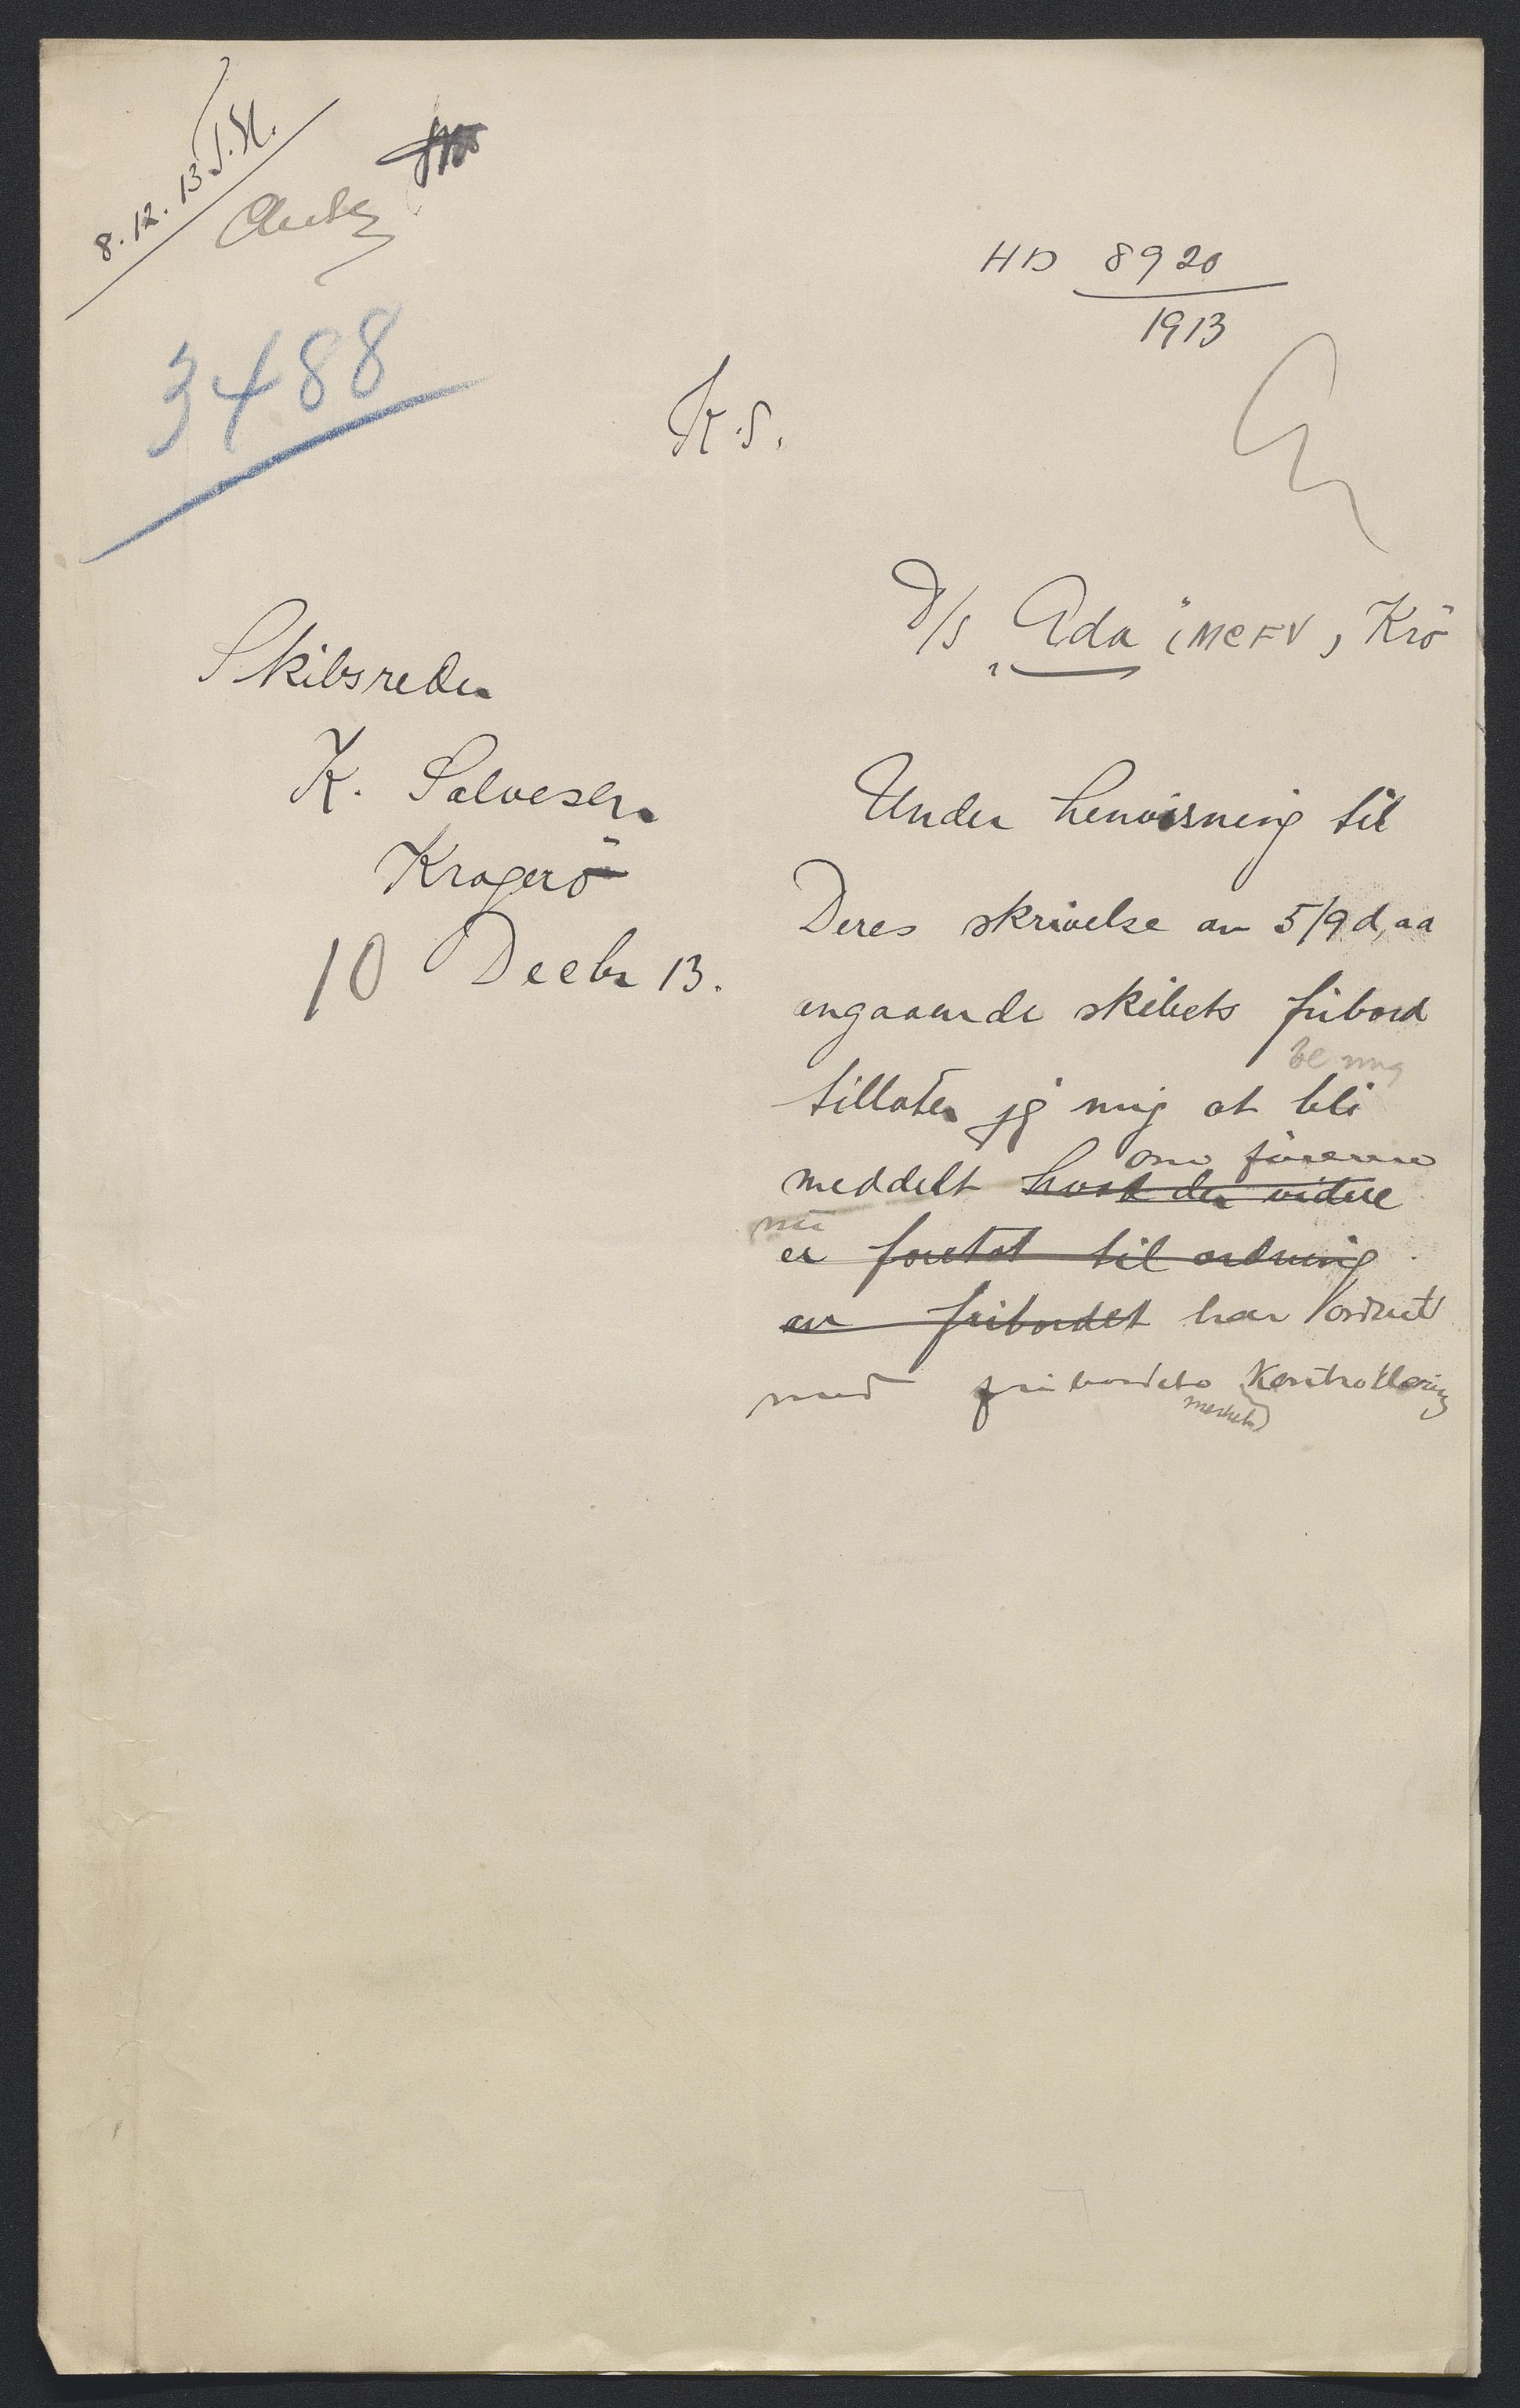 8.12.13 J.H.
HD 8920
1913
3488
K.S.
D/S „Ada" (MCFV), Krö
Skibsreder
K. Salvesen
Kragerö
10 Decbr 13.
Under henvisning til
Deres skrivelse av 5/9 d.aa
angaaende skibets fribord
be mig
tillater jeg mig at bli
om föreren
meddelt hvad der videre
nu
er foretat til ordning
av fribordet har ordnet
med fribordets Kontrollering
merkets